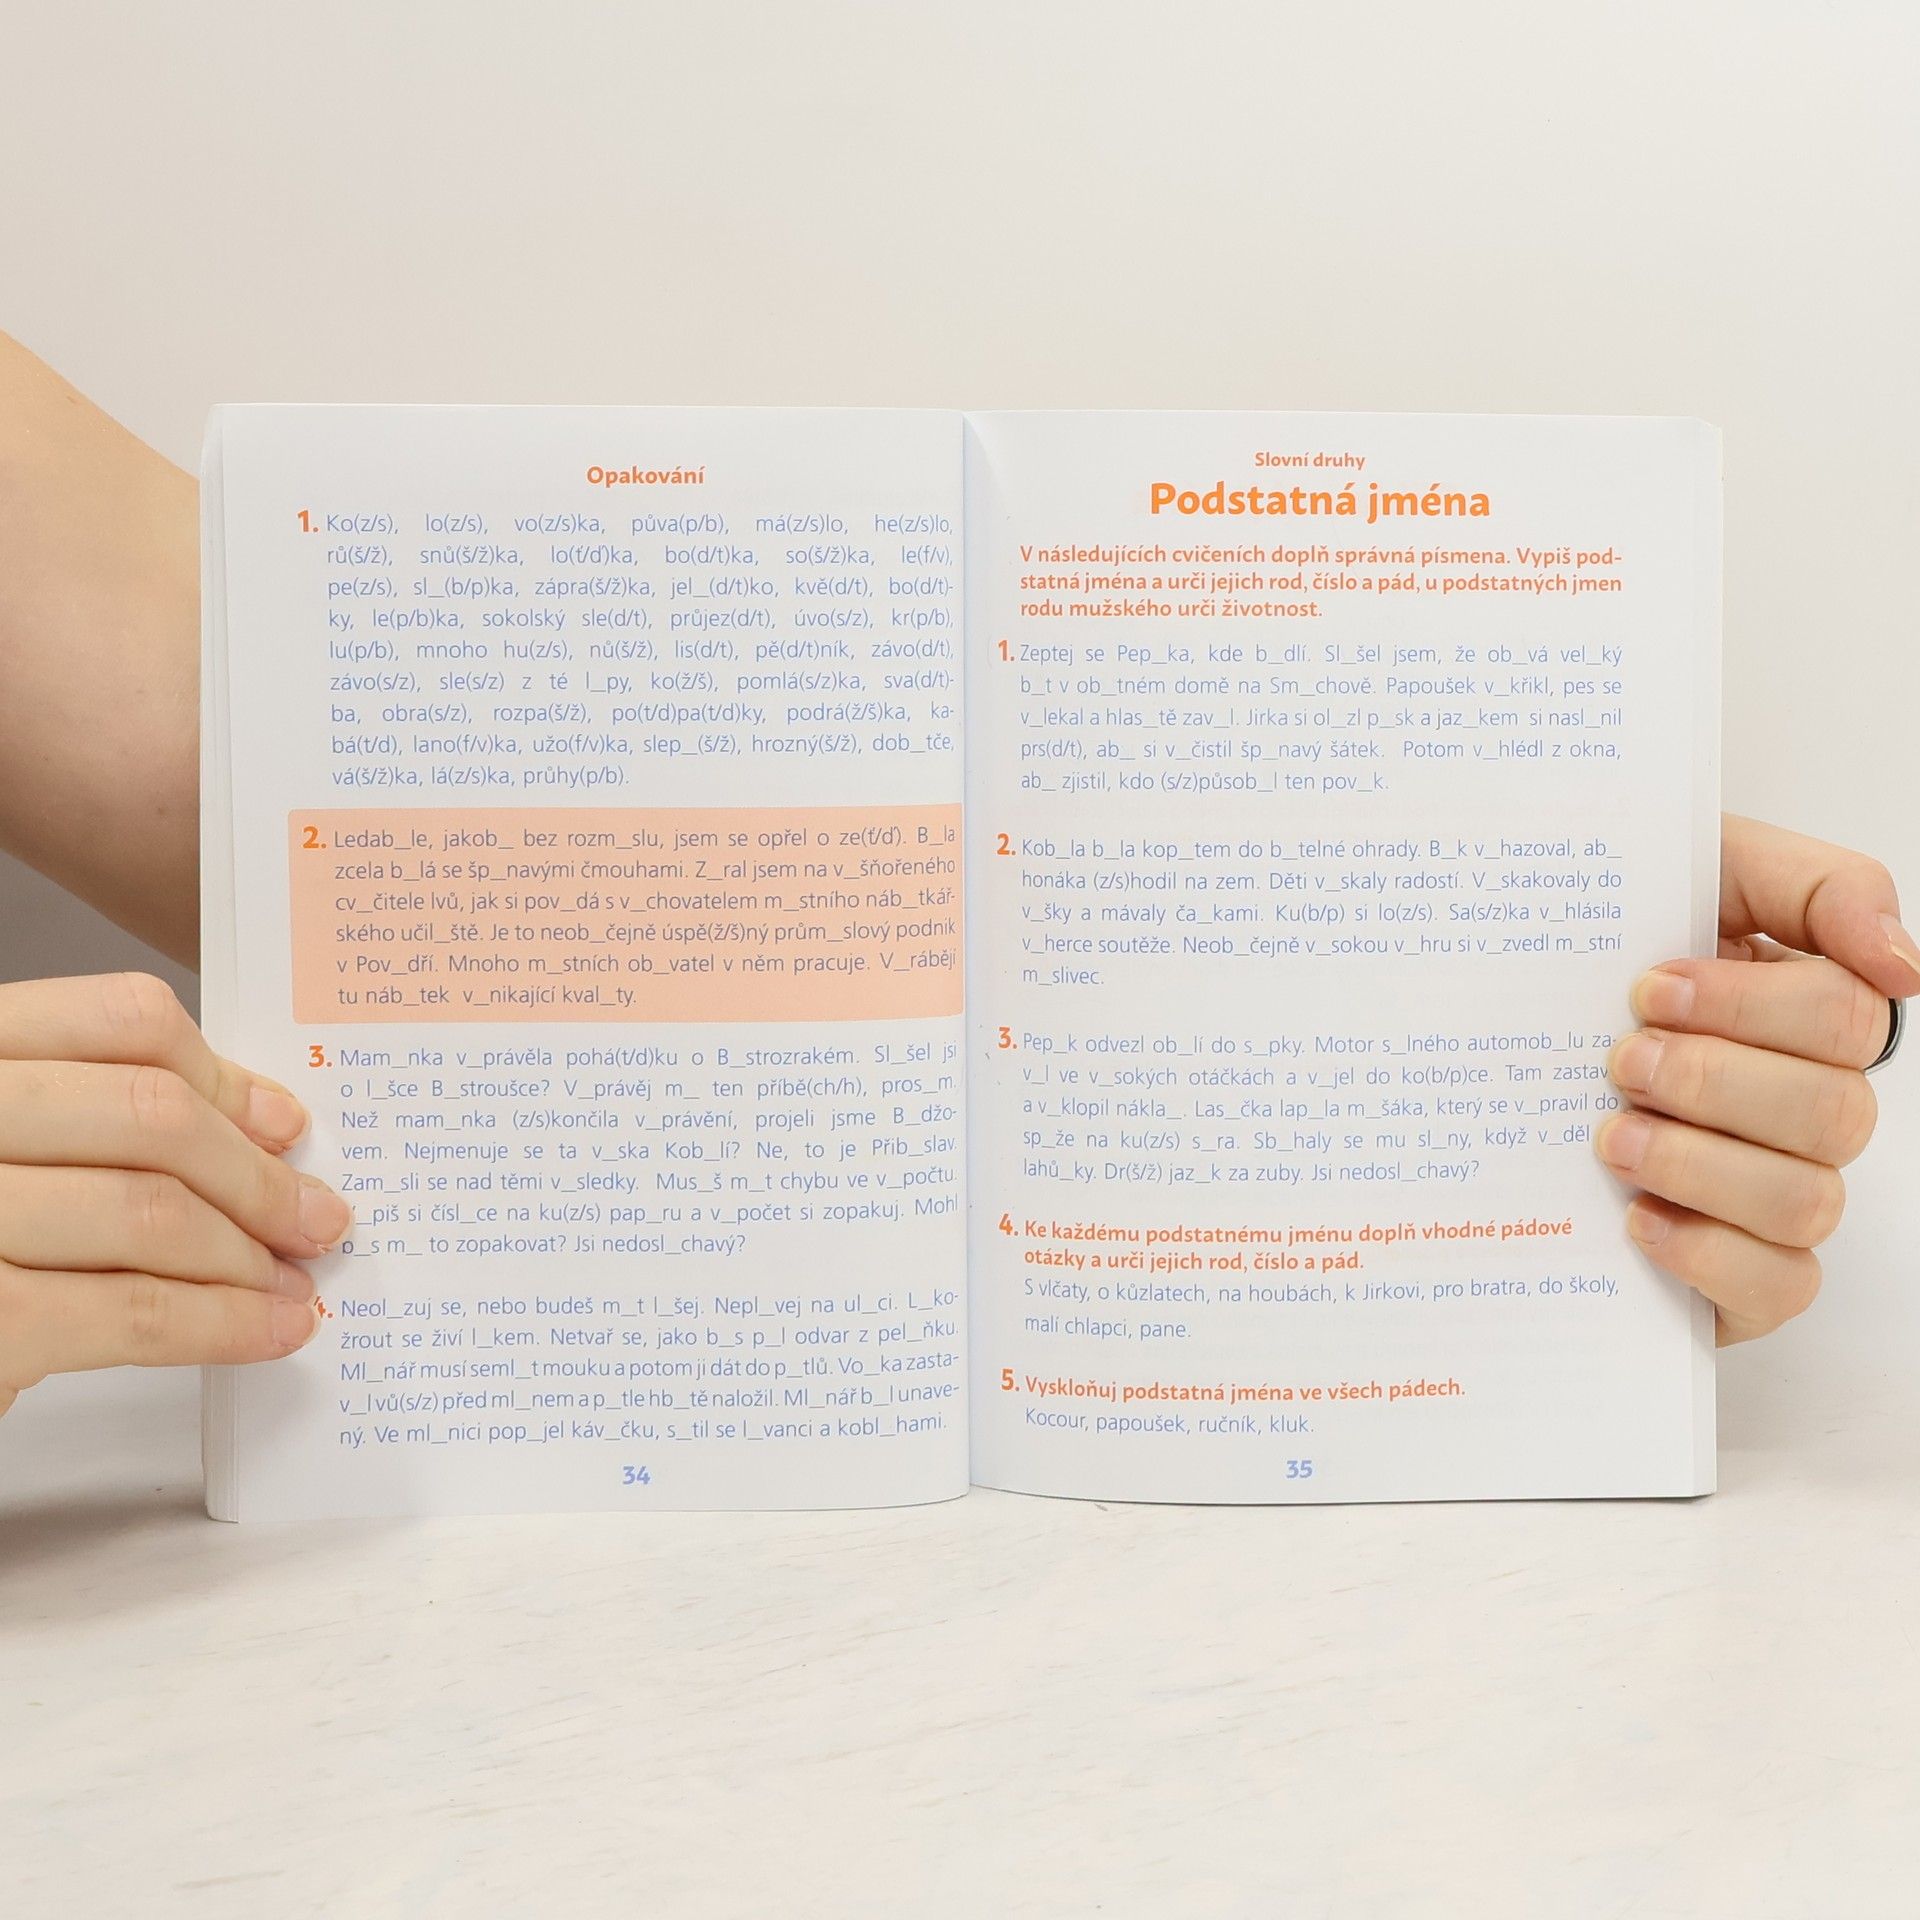 Opakování
1. Ko(z/s), lo(z/s), vo(z/s)ka, půva(p/b), má(z/s)lo, he(z/s)lo,
rů(š/ž), snů(š/ž)ka, lo(ť/ď)ka, bo(d/t)ka, so(š/ž)ka, le(f/v),
pe(z/s), sl_(b/p)ka, zápra(š/ž)ka, jel_(d/t)ko, kvě(d/t), bo(d/t)-
ky, le(p/b)ka, sokolský sle(d/t), průjez(d/t), úvo(s/z), kr(p/b),
lu(p/b), mnoho hu(z/s), nů(š/ž), lis(d/t), pě(d/t)ník, závo(d/t),
závo(s/z), sle(s/z) z té l_py, ko(ž/š), pomlá(s/z)ka, sva(d/t)-
ba, obra(s/z), rozpa(š/ž), po(t/d)pa(t/d)ky, podrá(ž/š)ka, ka-
bá(t/d), lano(f/v)ka, užo(f/v)ka, slep_(š/ž), hrozný(š/ž), dob_tče,
vá(š/ž)ka, lá(z/s)ka, průhy(p/b).
2. Ledab_le, jakob_ bez rozm_slu, jsem se opřel o ze(ť/ď). B_la
zcela b_lá se šp_navými čmouhami. Z_ral jsem na v_šňořeného
cv_čitele lvů, jak si pov_dá s v_chovatelem m_stního náb_tkář-
ského učil_ště. Je to neob_čejně úspě(ž/š)ný prům_slový podnik
v Pov_dří. Mnoho m_stních ob_vatel v něm pracuje. V_rábějí
tu náb_tek v_nikající kval_ty.
3. Mam_nka v_právěla pohá(t/d)ku o B_strozrakém. Sl_šel jsi
o l_šce B_stroušce? V_právěj m_ ten příbě(ch/h), pros_m.
Než mam_nka (z/s)končila v_právění, projeli jsme B_džo-
vem. Nejmenuje se ta v_ska Kob_lí? Ne, to je Přib_slav.
Zam_sli se nad těmi v_sledky. Mus_š m_t chybu ve v_počtu.
V_piš si čísl_ce na ku(z/s) pap_ru a v_počet si zopakuj. Mohl
b_s m_ to zopakovat? Jsi nedosl_chavý?
4. Neol_zuj se, nebo budeš m_t l_šej. Nepl_vej na ul_ci. L_ko-
žrout se živí l_kem. Netvař se, jako b_s p_l odvar z pel_ňku.
Ml_nář musí seml_t mouku a potom ji dát do p_tlů. Vo_ka zasta-
v_l vů(s/z) před ml_nem a p_tle hb_tě naložil. Ml_nář b_l unave-
ný. Ve ml_nici pop_jel káv_čku, s_til se l_vanci a kobl_hami.
34
Slovní druhy
Podstatná jména
V následujících cvičeních doplň správná písmena. Vypiš pod-
statná jména a urči jejich rod, číslo a pád, u podstatných jmen
rodu mužského urči životnost.
1. Zeptej se Pep_ka, kde b_dlí. Sl_šel jsem, že ob_vá vel_ký
b_t v ob_tném domě na Sm_chově. Papoušek v_křikl, pes se
v_lekal a hlas_tě zav_l. Jirka si ol_zl p_sk a jaz_kem si nasl_nil
prs(d/t), ab_ si v_čistil šp_navý šátek. Potom v_hlédl z okna,
ab_ zjistil, kdo (s/z)působ_l ten pov_k.
2. Kob_la b_la kop_tem do b_telné ohrady. B_k v_hazoval, ab_
honáka (z/s)hodil na zem. Děti v_skaly radostí. V_skakovaly do
v_šky a mávaly ča_kami. Ku(b/p) si lo(z/s). Sa(s/z)ka v_hlásila
v_herce soutěže. Neob_čejně v_sokou v_hru si v_zvedl m_stní
m_slivec.
3. Pep_k odvezl ob_lí do s_pky. Motor s_lného automob_lu za-
v_l ve v_sokých otáčkách a v_jel do ko(b/p)ce. Tam zastav
a v_klopil nákla_. Las_čka lap_la m_šáka, který se v_pravil do
sp_že na ku(z/s) s_ra. Sb_haly se mu sl_ny, když v_děl
lahů_ky. Dr(š/ž) jaz_k za zuby. Jsi nedosl_chavý?
4. Ke každému podstatnému jménu doplň vhodné pádové
otázky a urči jejich rod, číslo a pád.
S vlčaty, o kůzlatech, na houbách, k Jirkovi, pro bratra, do školy,
malí chlapci, pane.
5. Vyskloňuj podstatná jména ve všech pádech.
Kocour, papoušek, ručník, kluk.
35